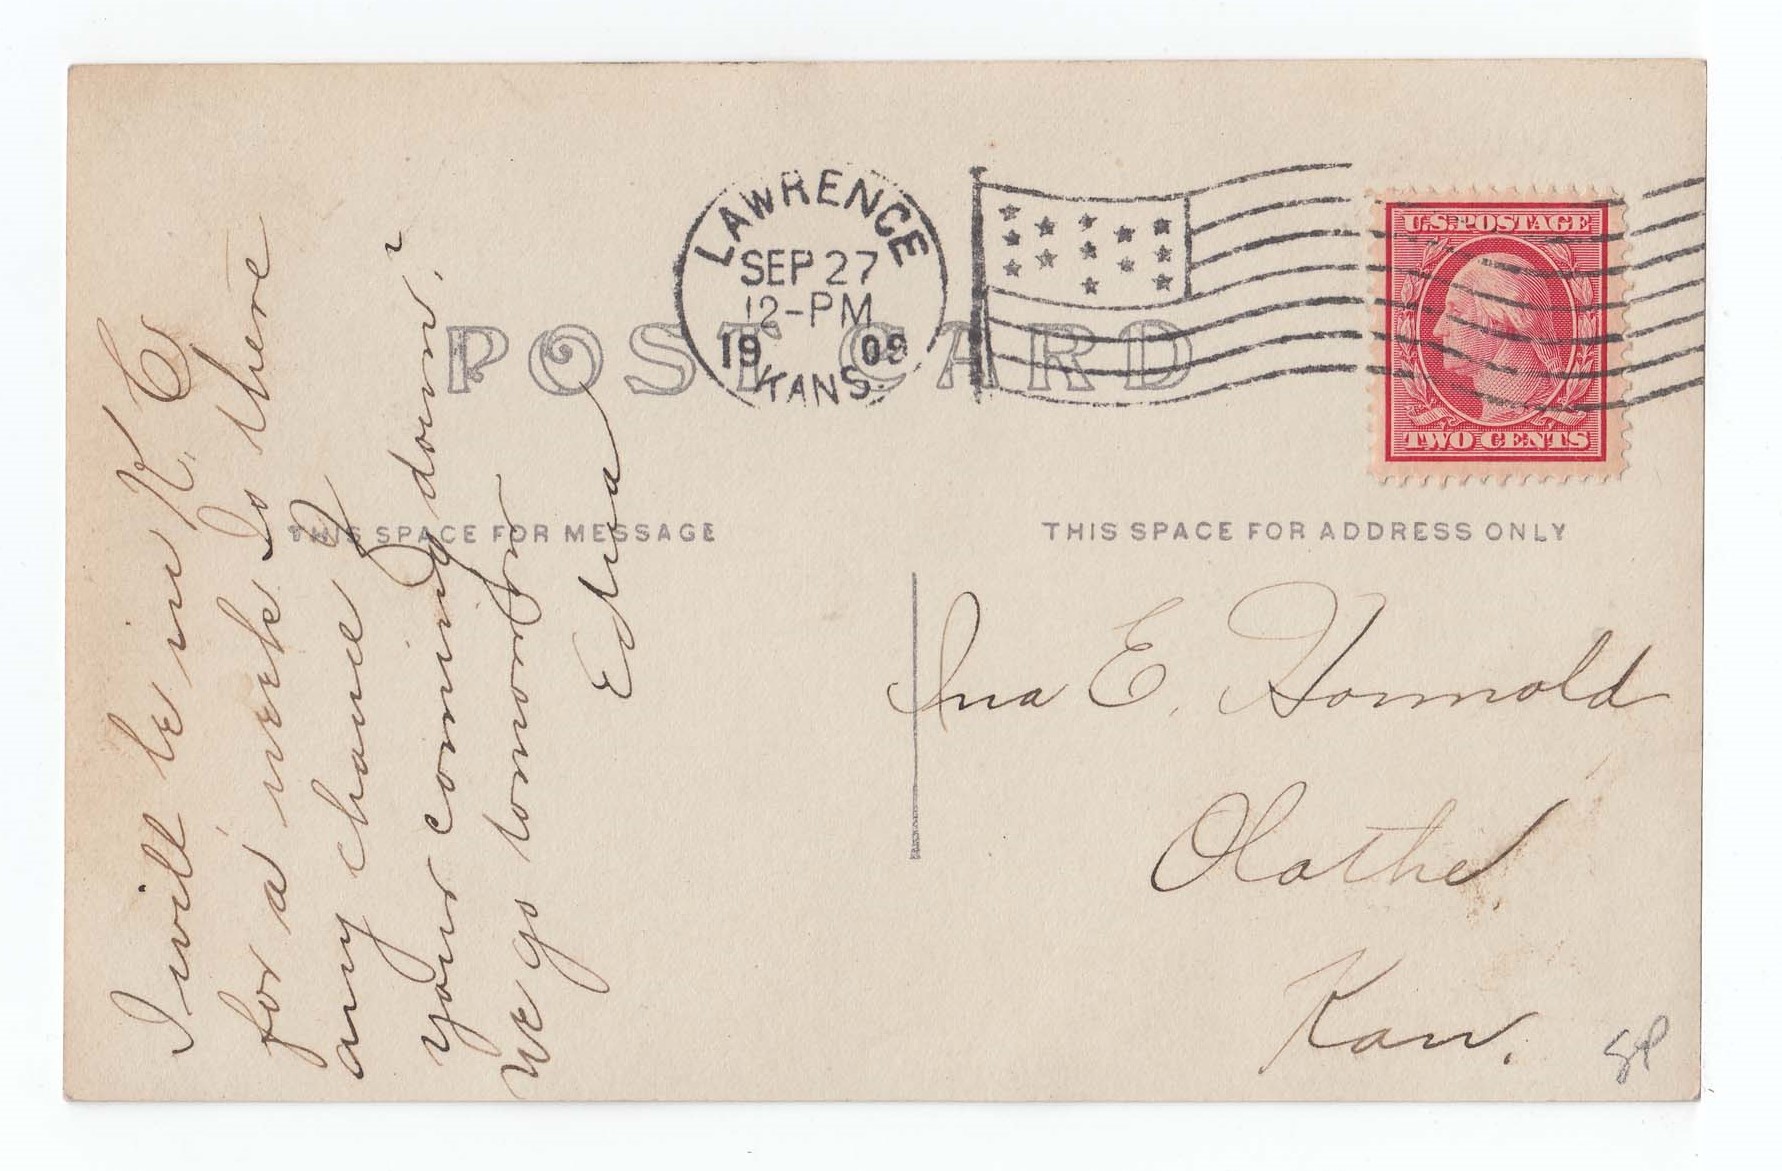 LAWRENCE
SEP 27
12-PM
1909
KANS.
U.S. POSTAGE
TWO CENTS
POST CARD
THIS SPACE FOR MESSAGE
THIS SPACE FOR ADDRESS ONLY
I will be in K. C.
for a week Is there
any chance of
your coming down?
We go tomorrow
Edna
Ina E. Honnold
Olathe
Kan.